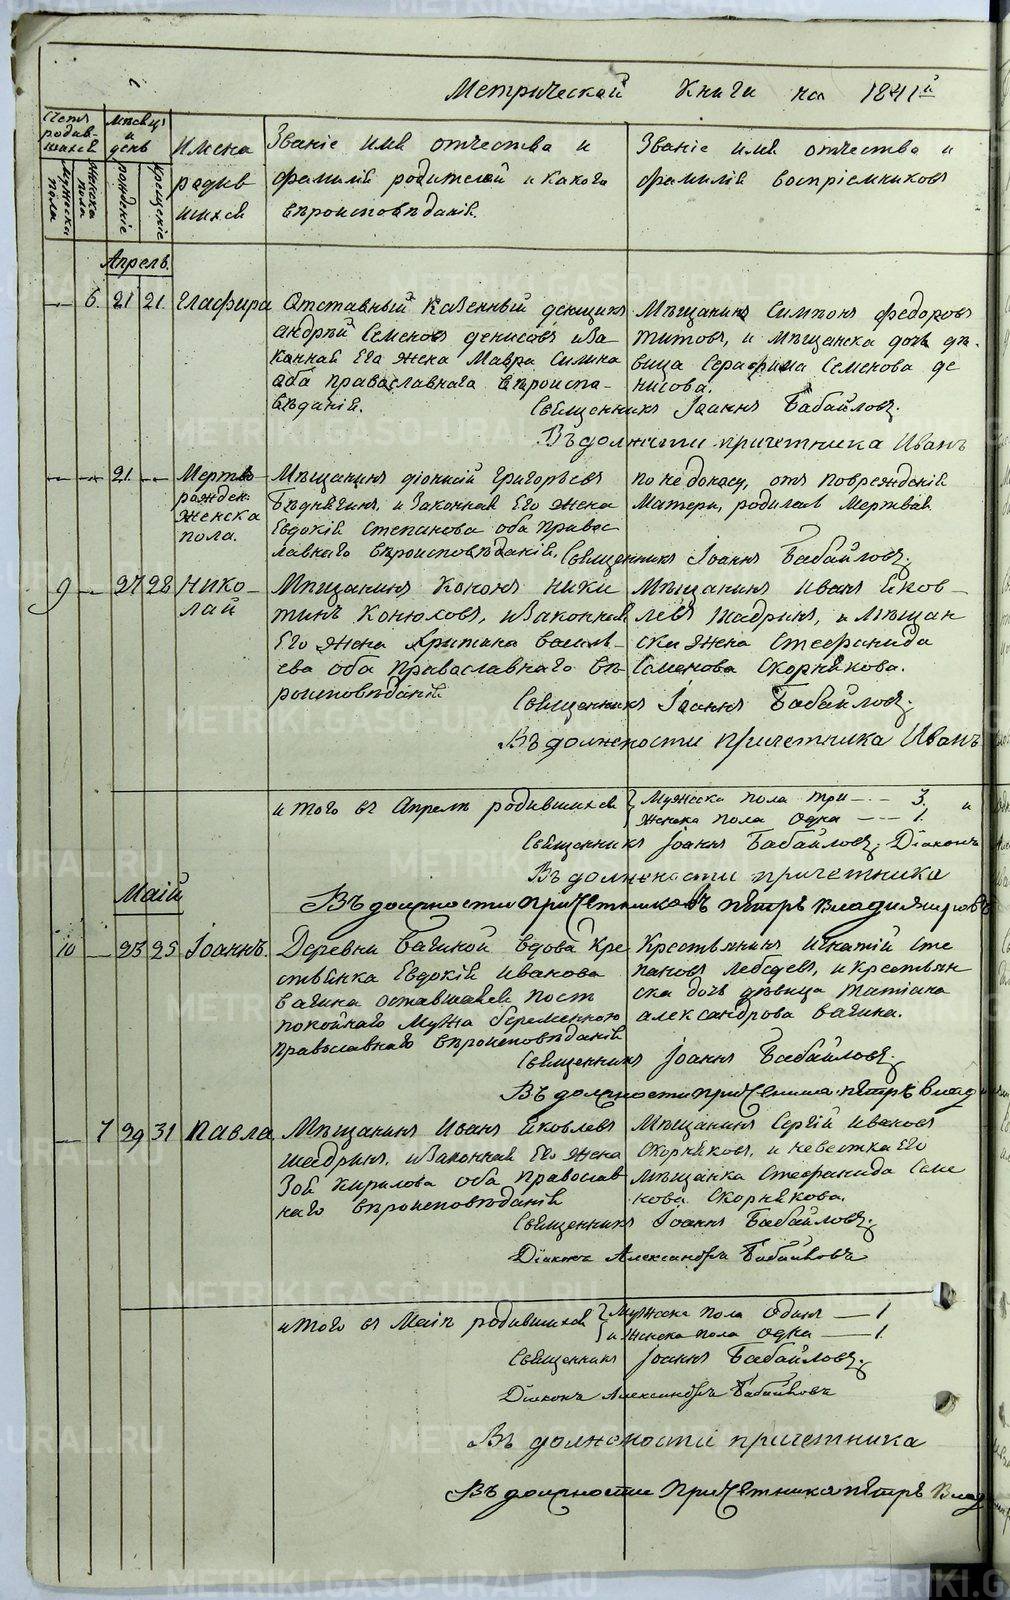 Метрической Книги на 1841й
Счетъ родившихся
Мѣсяцъ и день
Имена родившихся
Званіе имя отчества и фамилій родителей и какого вѣроисповѣданія.
Званіе имя отчества и фамилій воспріемниковъ
мужеска пола
женска пола
рожденіе
крещеніе
Апрель.
— 6. 21 21. Глафира
Отставный казенный денщикъ
андрѣй Семеновъ денисовъ иЗа
конная Его жена Мавра Симина
оба православнаго вѣроиспа-
вѣданія.
Мѣщанинъ Симеонъ федоровъ
титовъ, и мѣщанска дочь дѣ-
вица Серафима Семенова де
нисова.
Священникъ Іоаннъ Бабайловъ.
Въ должности причетника Иванъ
— — 21. — Мертво
рожден.
Женска
пола.
Мѣщанинъ діонисій Григорьевъ
Бѣднягинъ, и Законная Его жена
Евдокія Степанова оба правос
лавнаго вѣроисповѣданія.
по недонасу, отъ поврежденія
матери, родилась мертвая
Священникъ Іоаннъ Бабайловъ.
9 — 27 28 Нико-
лай
Мѣщанинъ Кононъ Ники
тинъ Конюховъ, иЗаконная
Его жена Христина василь-
ева оба Православнаго вѣ-
роисповѣданія
Мѣщанинъ Иванъ Яков-
левъ Шадринъ, и мѣщан
ски жена Стефанида
Семенова Скорнякова.
Священникъ Іоаннъ Бабайловъ.
Въ должности причетника Иванъ
и того въ Апрелѣ родившихся
Мужеска пола три — 3. и
женска пола одна — 1.
Священникъ Іоаннъ Бабайловъ. Діаконъ
Въ должности причетника
Въ должности причетника Петръ Владимировъ
Маій
10 — 23 25 Іоаннъ.
Деревни Вагиной вдова кре
стьянка Евдокія Иванова
Вагина оставшаяся пост
покойнаго мужа беременною
православнаго вѣроисповѣданія
Крестьянинъ Игнатій Сте
пановъ лебедевъ, и крестьян
ска дочь дѣвица татіана
александрова вагина.
Священникъ Іоаннъ Бабайловъ.
Въ должности причетника Петръ Влад
— 7 29 31 Павла
Мѣщанинъ Иванъ Яковлевъ
шадринъ, иЗаконная Его жена
Зоя Кирилова оба православ
наго вѣроисповѣданія
Мѣщанинъ Сергій Ивановъ
Скорняковъ, и невестка Его
мѣщанка Стефанида Семе
нова Скорнякова.
Священникъ Іоаннъ Бабайловъ.
Діаконъ Александръ Бабайловъ
и того въ Маіи родившихся
Мужеска пола Одинъ — 1
и Женска пола одна — 1.
Священникъ Іоаннъ Бабайловъ.
Діаконъ Александръ Бабайловъ
Въ должности причетника
Въ должности Причетника Петръ Влад
METRIKI.GASO-URAL.RU